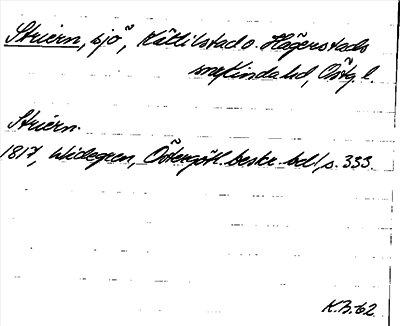 Striern, sjö, Kättilstad o. Hägerstads
snr Kinda hd, Östg. l.
Striern.
1817, Widegren, Östergötl. beskr. bd 1, s. 333.
K.B. 62